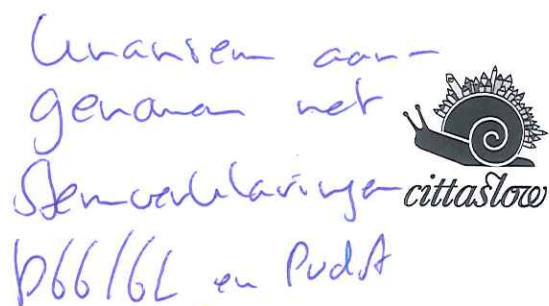 Unaniem aan-
genomen met
stemverklaringen
D66/GL en PvdA
cittaslow